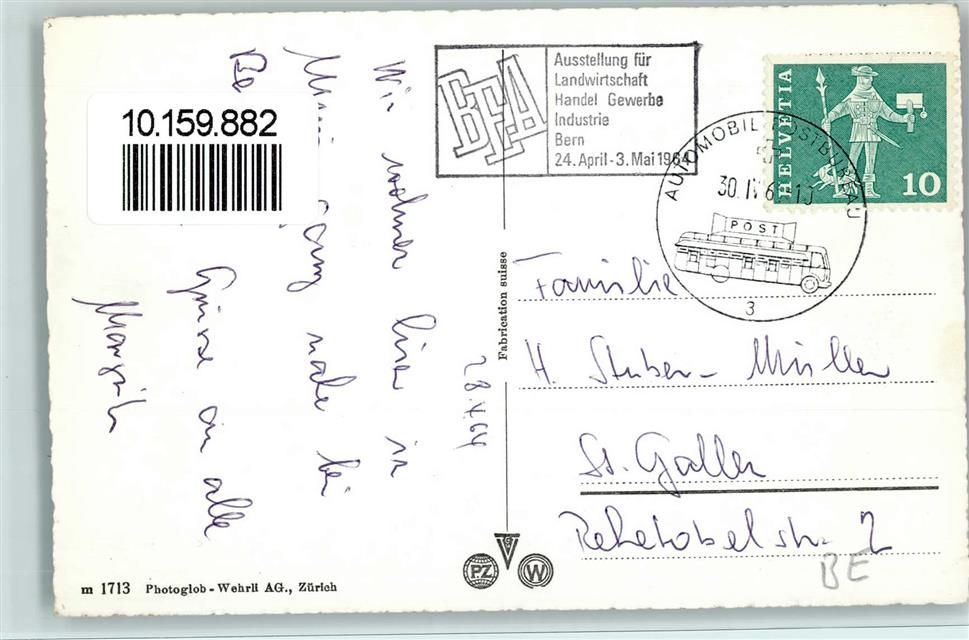 10.159.882
Wir wohnen hier in
ganz nahe bei
Be
Grüsse an alle
28.4.64
BEA
Ausstellung für
Landwirtschaft
Handel Gewerbe
Industrie
Bern
24. April - 3. Mai 1964
AUTOMOBIL-POSTBUREAU
30. IV 6
POST
3
HELVETIA
10
Familie
H. Stuber- Müller
St. Gallen
Rehetobelstr. 2
BE
Fabrication suisse
m 1713 Photoglob - Wehrli AG., Zürich
PZ
V
W